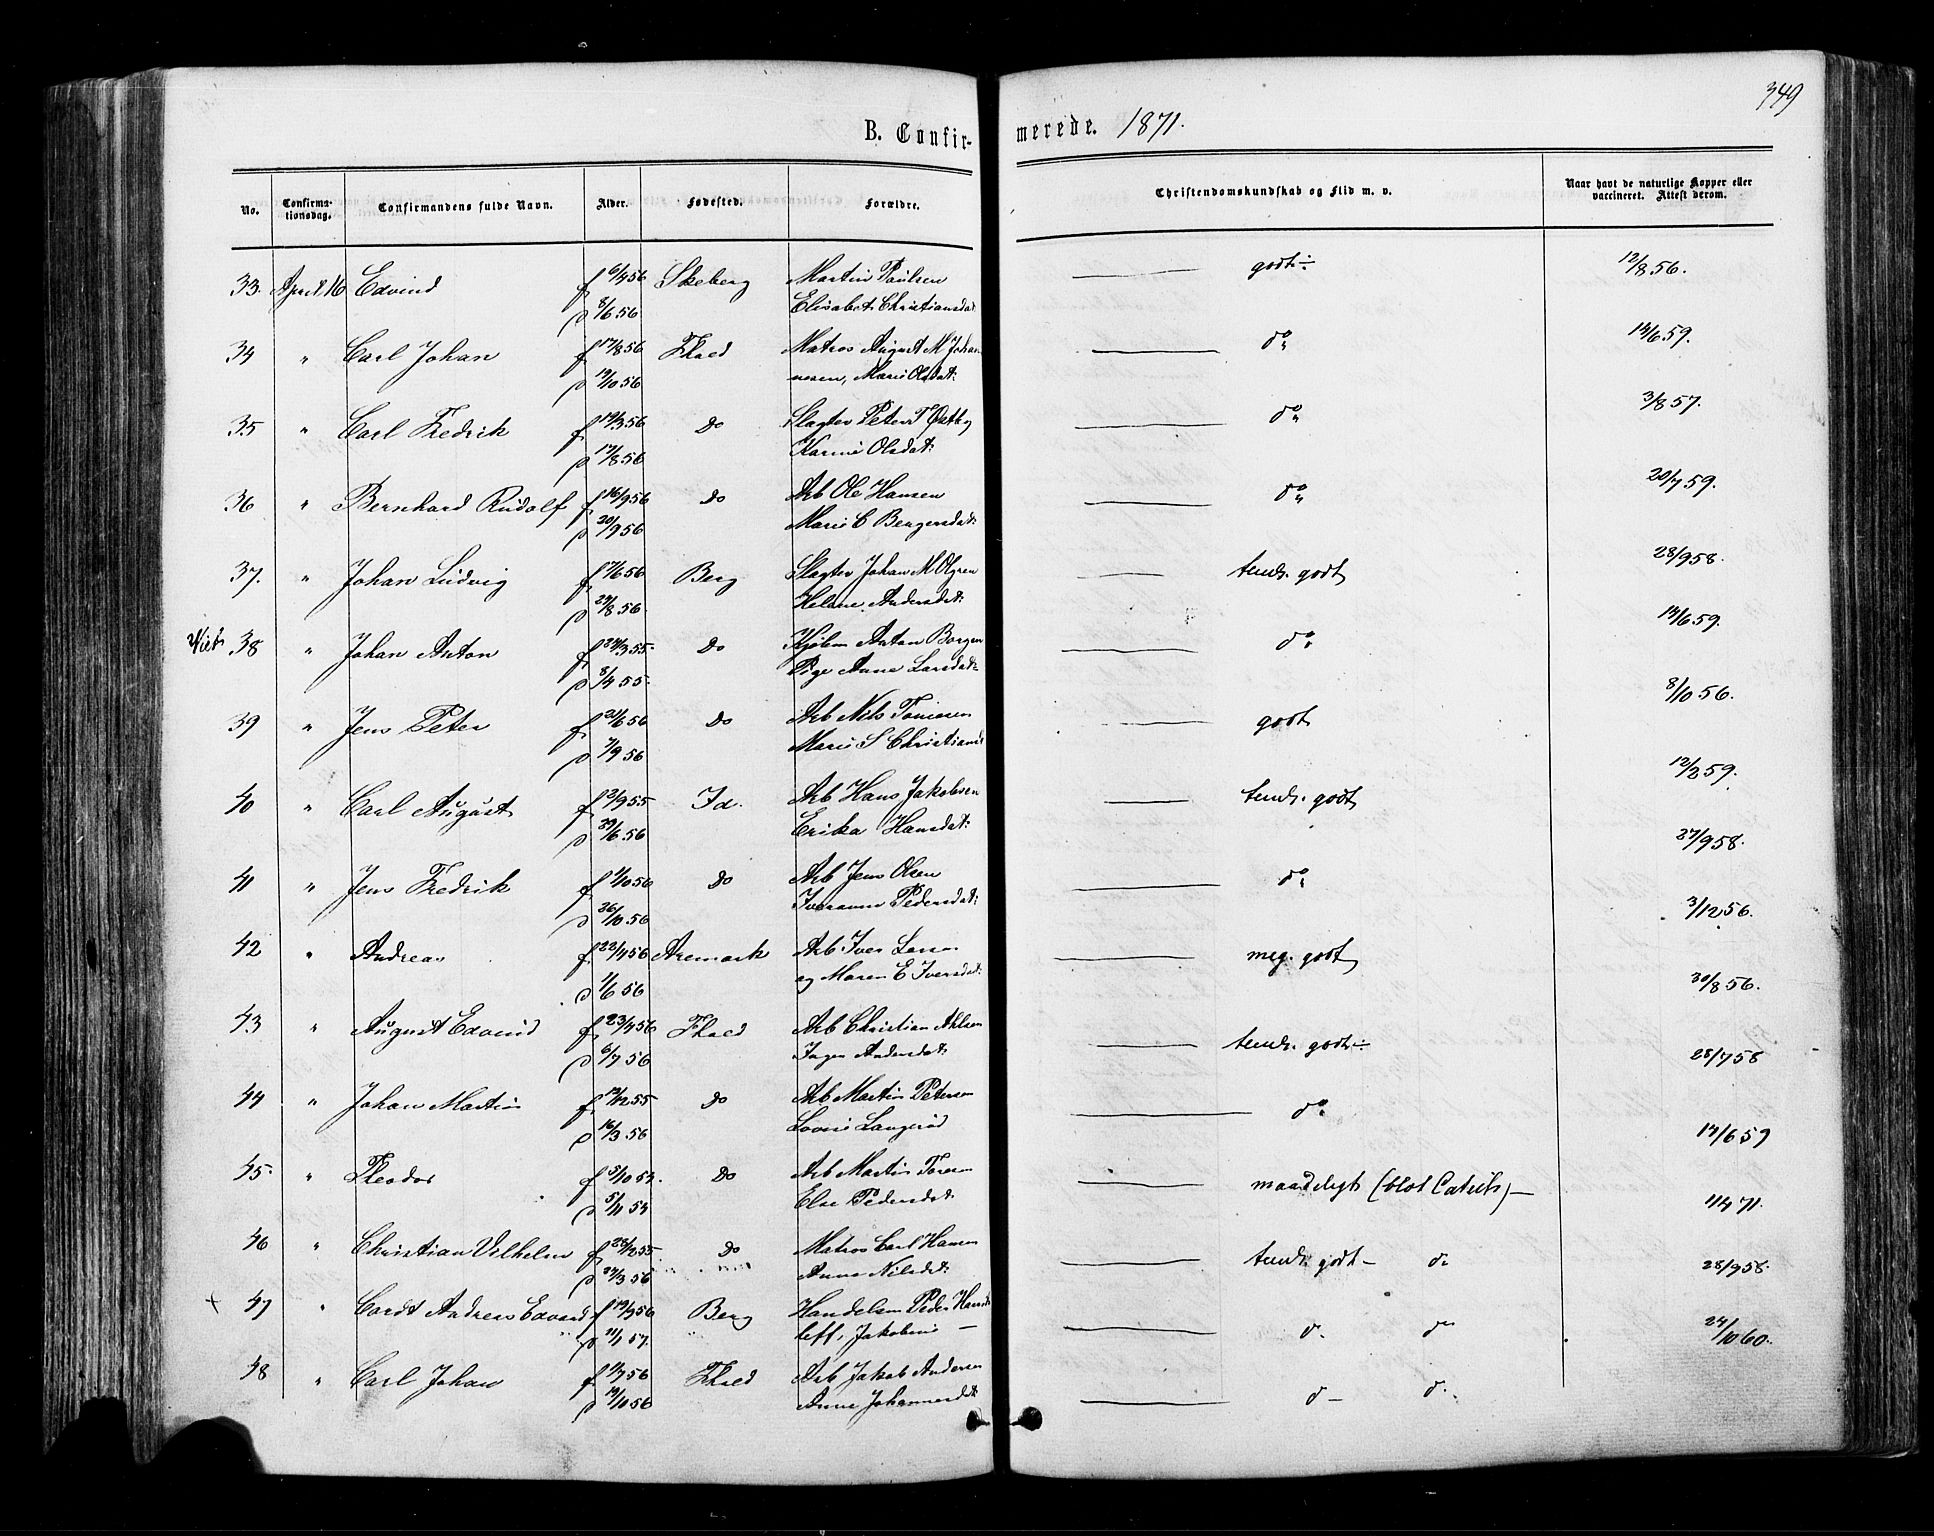 349
B. Confirmerede. 1871.
No. Confirmationsdag. Confirmandens fulde Navn. Alder. Fødested. Forældre. Christendomskundskab og Flid m. v. Naar havt de naturlige Kopper eller vaccineret. Attest derom.
33. April 16 Edvind f 6/4 56 Skeberg Martin Paulsen godt ÷ 12/8 56.
d 8/6 56 Elisabet Christiansdat
34 " Carl Johan f 17/8 56 Fhald Matros August M Johan 14/6 59.
d 19/10 56 nesen, Marie Olsdat: do
35 " Carl Fredrik f 19/3 56 do Slagter Peter T Østby do 3/8 57.
d 17/8 56 Karine Olsdat:
36 " Bernhard Rudolf f 16/9 56 do Arb Ole Hansen do 20/7 59.
d 20/9 56 Marie C Bengersdat:
37. " Johan Ludvig f 17/6 56 Berg Slagter Johan M Olgren temh. godt 28/9 58.
d 24/8 56 Helene Andersdat:
38 " Johan Anton f 24/3 55. do Anton Borgen do 14/6 59.
d 8/4 55. Pige Anne Larsdat:
39 " Jens Peter f 21/6 56 do Arb Nils godt 8/10 56.
d 7/9 56 Marie S Christians
40 " Carl August f 2/9 55 Id. Arb Hans Jakobsen temh. godt 12/2 59.
d 29/6 56 Erika Hansdat:
41 " Jens Fredrik f 1/10 56 do Arb Jens Olsen do 27/9 58.
d 26/10 56 Pedersdat:
42 " Andreas f 22/4 56 Aremark Arb Iver meg. godt 3/12 56.
d 1/6 56 og Maren E Iversdat:
43 " August Edvind f 23/4 56 Fhald Arb Christian Ahlsen temh. godt ÷ 30/8 56.
d 6/7 56 Inger Andersdat:
44 " Johan Martin f 12/12 55 do Arb Martin Petersen do 28/7 58
d 16/3 56 Lovise Langerød
45. " Theodor f 3/10 54. do Arb Martin maadeligt (blot Catech) — 14/6 59
d 5/11 54 Else Pedersdat:
46 " Christian Vilhelm f 28/12 55 do Matros Carl Hansen temh. godt — do 11/4 71.
d 24/3 56 Anne Nilsdat:
+ 47 " Cordt Andreas Edvard f 19/9 56 Berg Handelsm Peder do do 28/9 58.
d 11/1 57. Jakobine —
48 " Carl Johan f 1/7 56 Fhald Arb Jakob Andersen d — d. 24/10 60.
d 19/10 56 Anne Johannesdt: